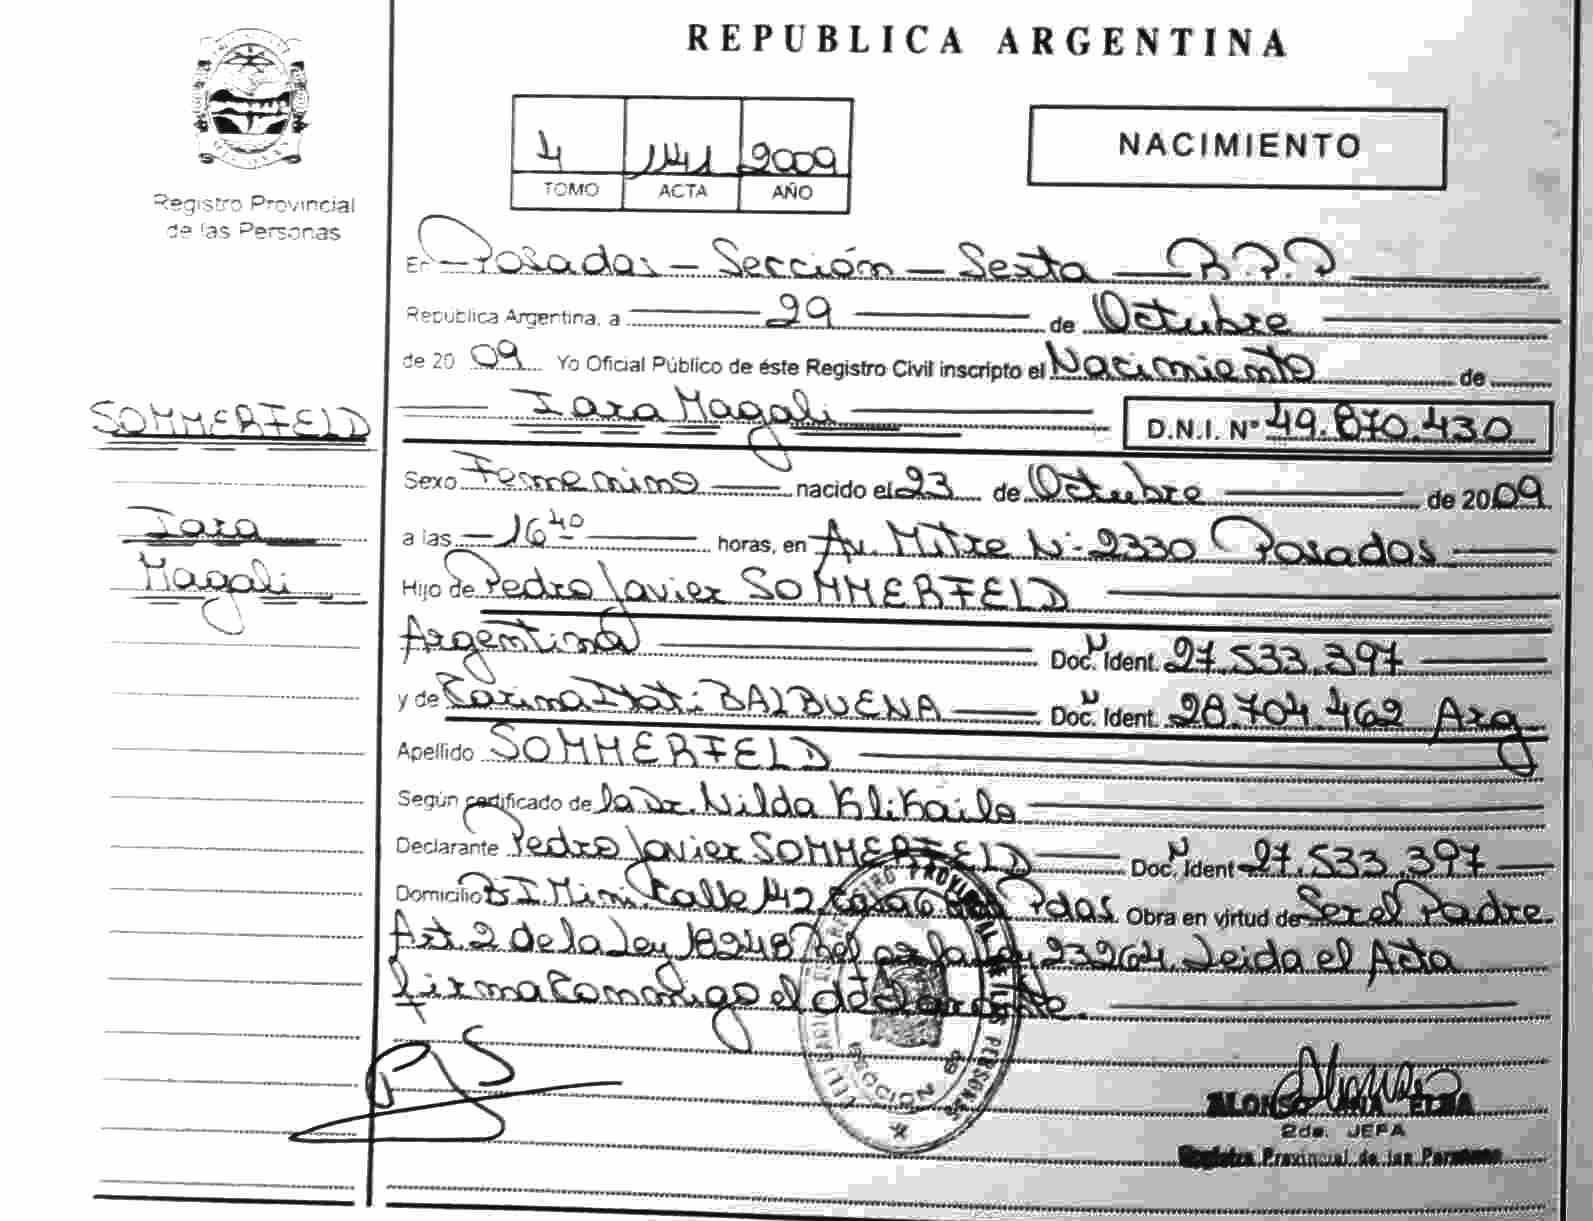 REPUBLICA ARGENTINA
NACIMIENTO
1 141 2009
TOMO ACTA AÑO
Registro Provincial
de las Personas
En Posadas - Sección - Sexta - R.P.P
Republica Argentina, a 29 de Octubre
de 2009 Yo Oficial Público de éste Registro Civil inscripto el Nacimiento de
SOMMERFELD
Iara Magali D.N.I. Nº 49.870.430
Sexo Femenino nacido el 23 de Octubre de 2009
Iara
a las 16 40 horas, en Av. Mitre Nº 2330 Posadas
Magali
Hijo de Pedro Javier SOMMERFELD
Argentina Doc. Ident. 27.533.397
y de Karina Itati BALBUENA Doc. Ident. 28.704.462 Arg
Apellido SOMMERFELD
Según certificado de la Dr. Nilda
Declarante Pedro Javier SOMMERFELD Doc. Ident 27.533.397
Domicilio Calle 142 Casa 6 Pdas. Obra en virtud de Ser el Padre.
Art. 2 de la Ley 18248 Ley 23264. Leida el Acta
firma Conmigo el declarante.
REGISTRO PROVINCIAL DE LAS PERSONAS
SECCION 6a
ALONSO ANA ELBA
2da. JEFA
Registro Provincial de las Personas